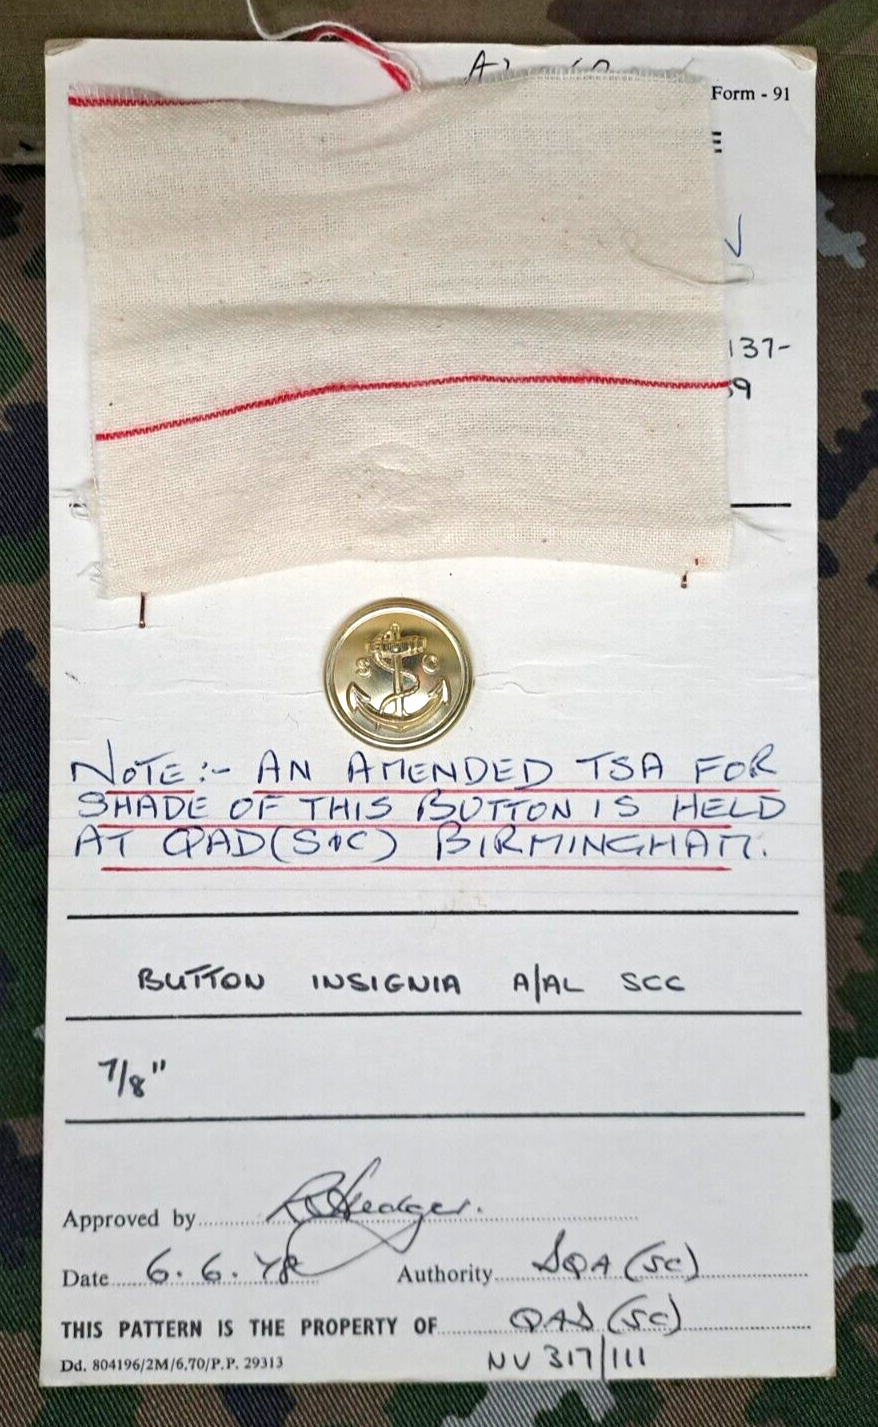 Form - 91
137-
9
S C
NOTE:- AN AMENDED TSA FOR
SHADE OF THIS BUTTON IS HELD
AT QAD(S&C) BIRMINGHAM.
BUTTON INSIGNIA A/AL SCC
7/8"
Approved by
Date 6.6.78 Authority SQA (SC)
THIS PATTERN IS THE PROPERTY OF QAD (SC)
Dd. 804196/2M/6.70/P.P. 29313 NV 317/111